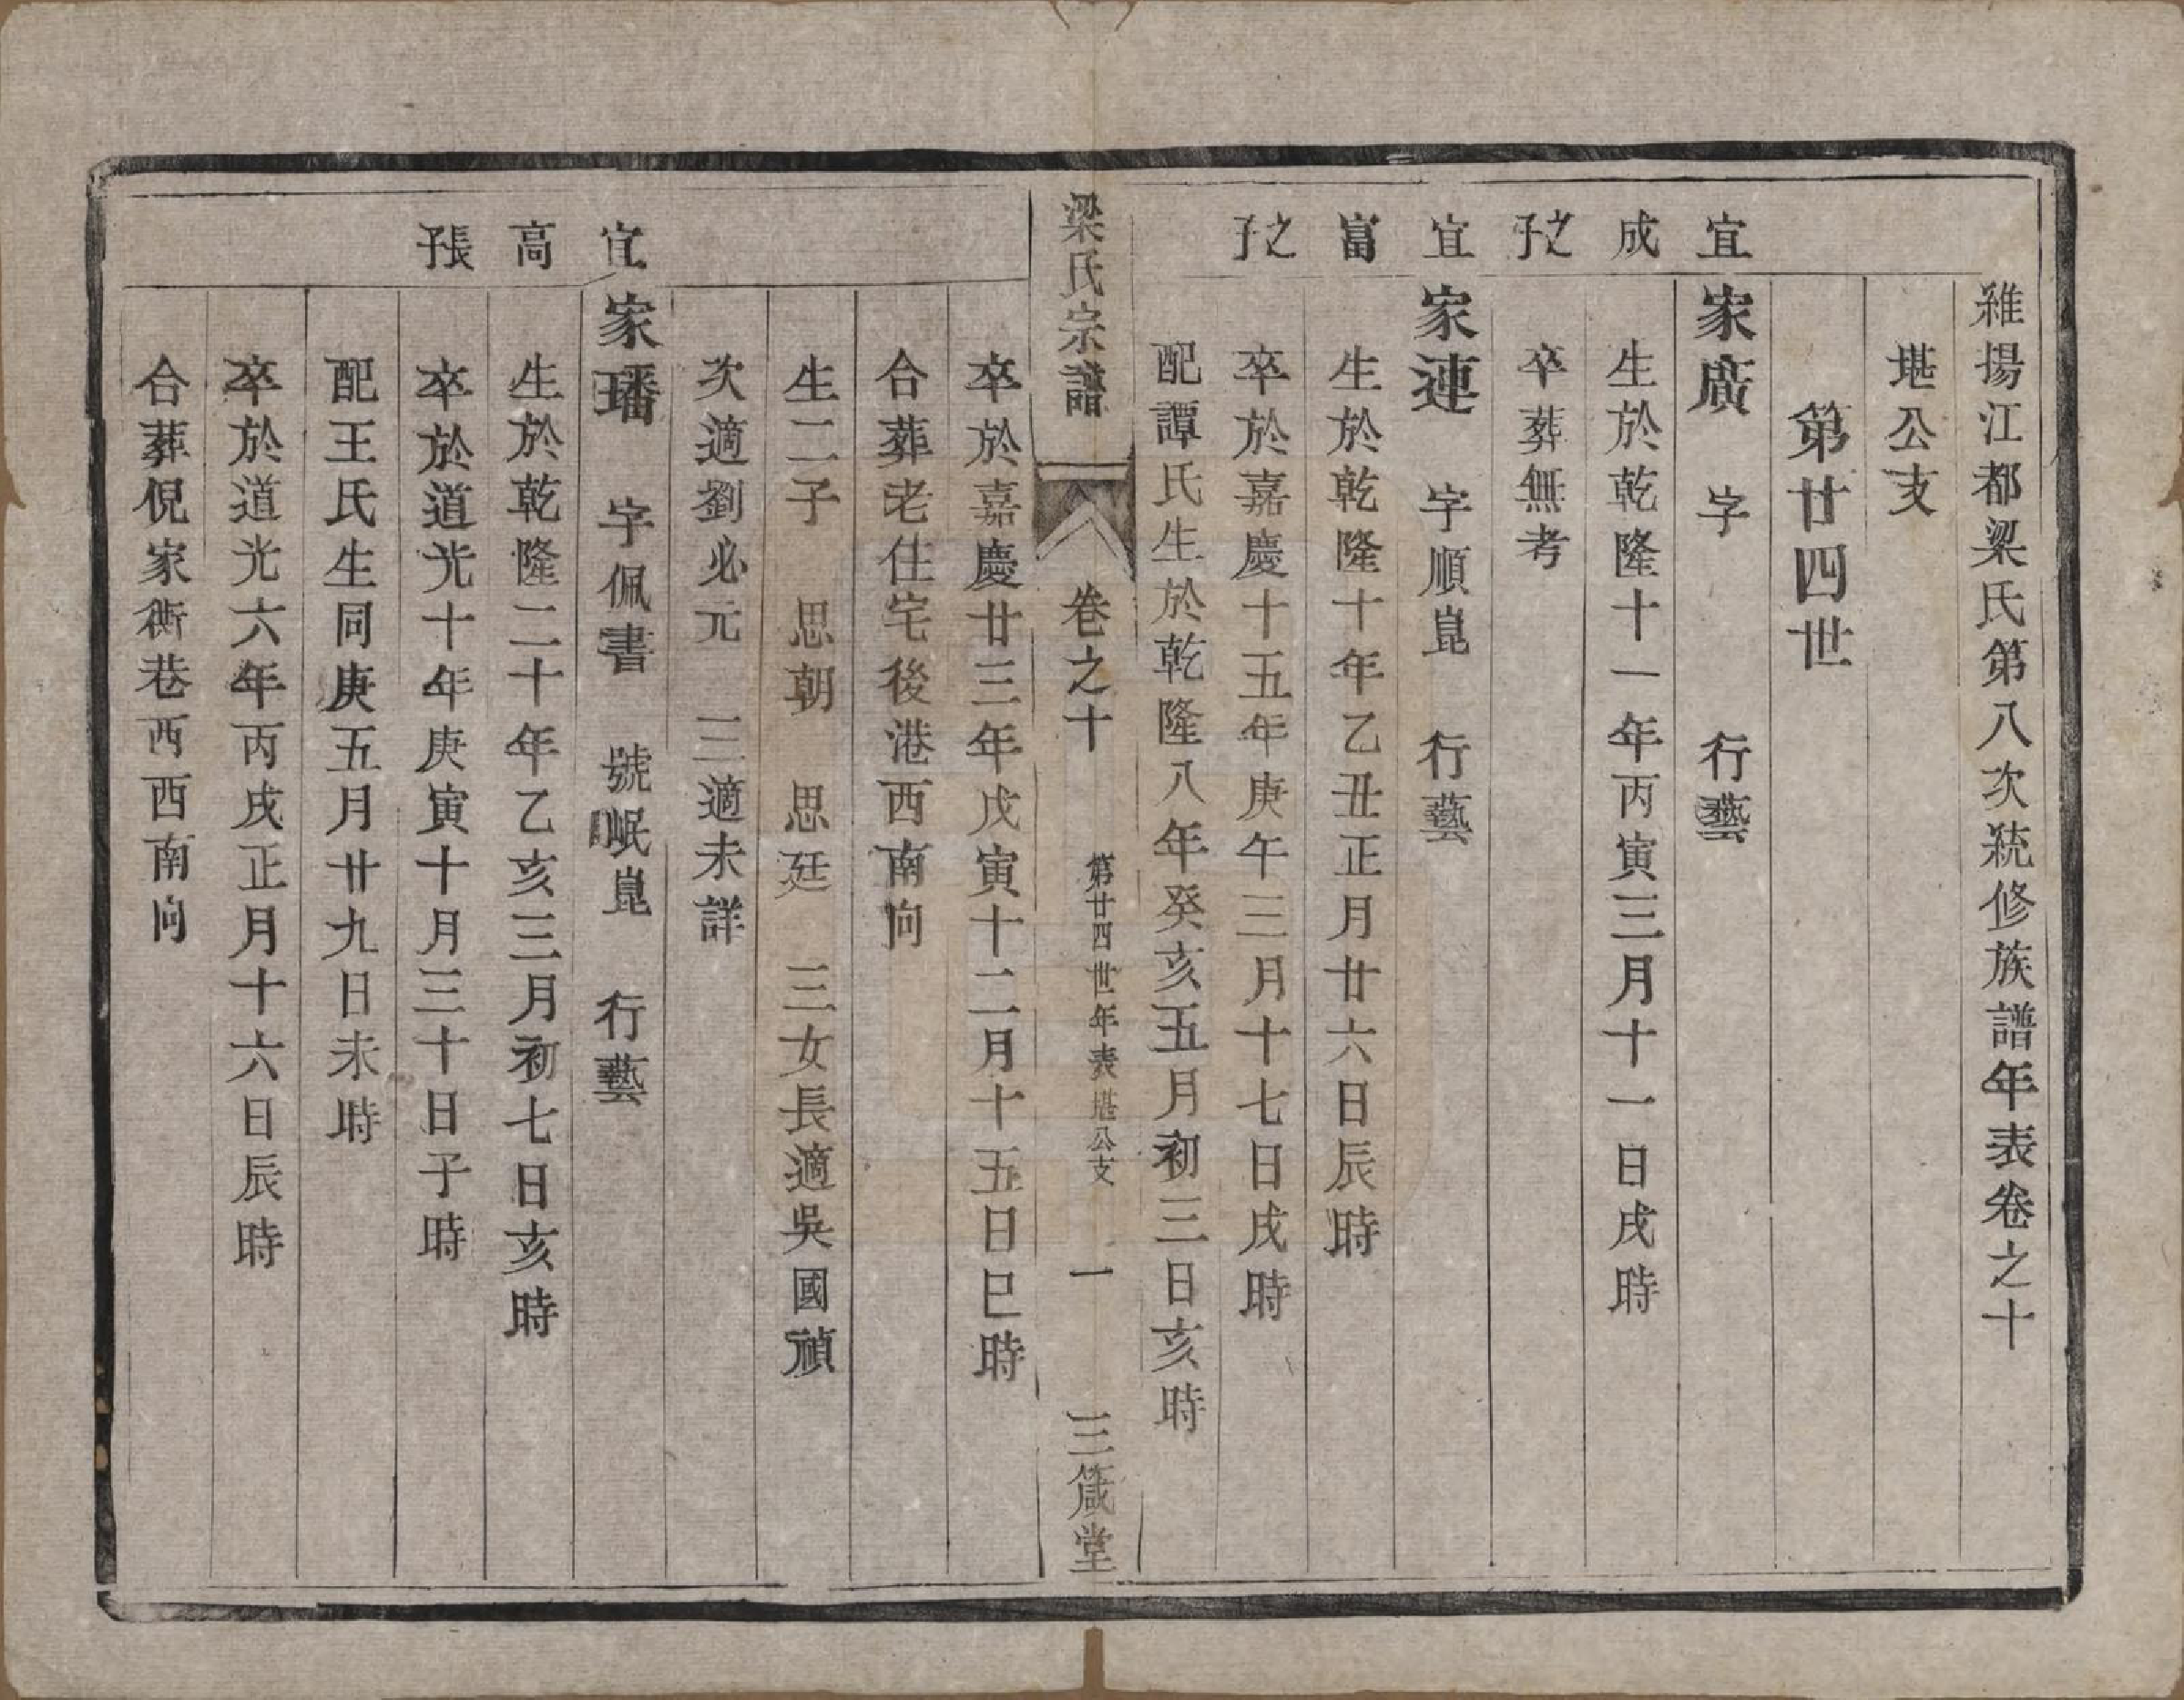 維揚江都梁氏第八次統修族譜年表卷之十
堪公支
第廿四世
宜成之子
家廣　字　行藝
生於乾隆十一年丙寅三月十一日戌時
卒葬無考
宜富之子
家連　字順崑　行藝
生於乾隆十年乙丑正月廿六日辰時
卒於嘉慶十五年庚午三月十七日戌時
配譚氏生於乾隆八年癸亥五月初三日亥時
梁氏宗譜　卷之十　第廿四世年表堪公支　一　三箴堂
卒於嘉慶廿三年戊寅十二月十五日巳時
合葬老仕宅後港西南向
生二子　思朝　思廷　三女長適吳國禎
次適劉必元　三適未詳
宜高長子
家璠　字佩書　號岷崑　行藝
生於乾隆二十年乙亥三月初七日亥時
卒於道光十年庚寅十月三十日子時
配王氏生同庚五月廿九日未時
卒於道光六年丙戌正月十六日辰時
合葬倪家衖巷西西南向